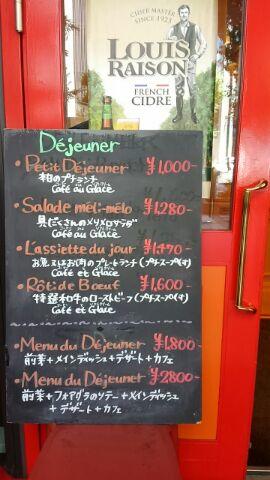 CIDER MASTER
SINCE 1923
LOUIS
RAISON
FRENCH
CIDRE
Déjeuner
• Petit Déjeuner ¥1,000-
Café ou Glace
• Salade méli-mélo ¥1,280-
具だくさんのメリメロサラダ
Café ou Glace
• L'assiette du jour ¥1,770-
お魚又はお肉のプレートランチ(プチスープ付)
Café et Glace
• Rôti de Bœuf ¥1,600-
特撰和牛のローストビーフ(プチスープ付)
Café et Glace
• Menu du Déjeuner ¥1,800-
前菜+メインディッシュ+デザート+カフェ
• Menu du Déjeuner ¥2800-
前菜+フォアグラのソテー+メインディッシュ
+デザート+カフェ